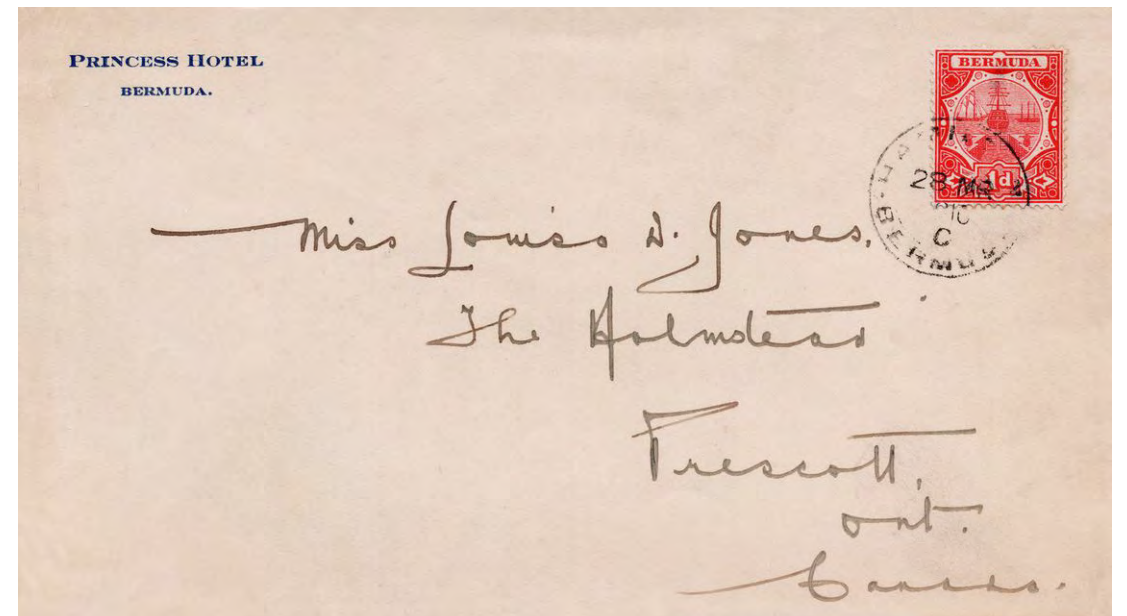 PRINCESS HOTEL
BERMUDA.
BERMUDA
1d
28 MR
C
BERMUDA
Miss Louise D. Jones.
The Holmstead
Prescott,
Ont.
Canada.